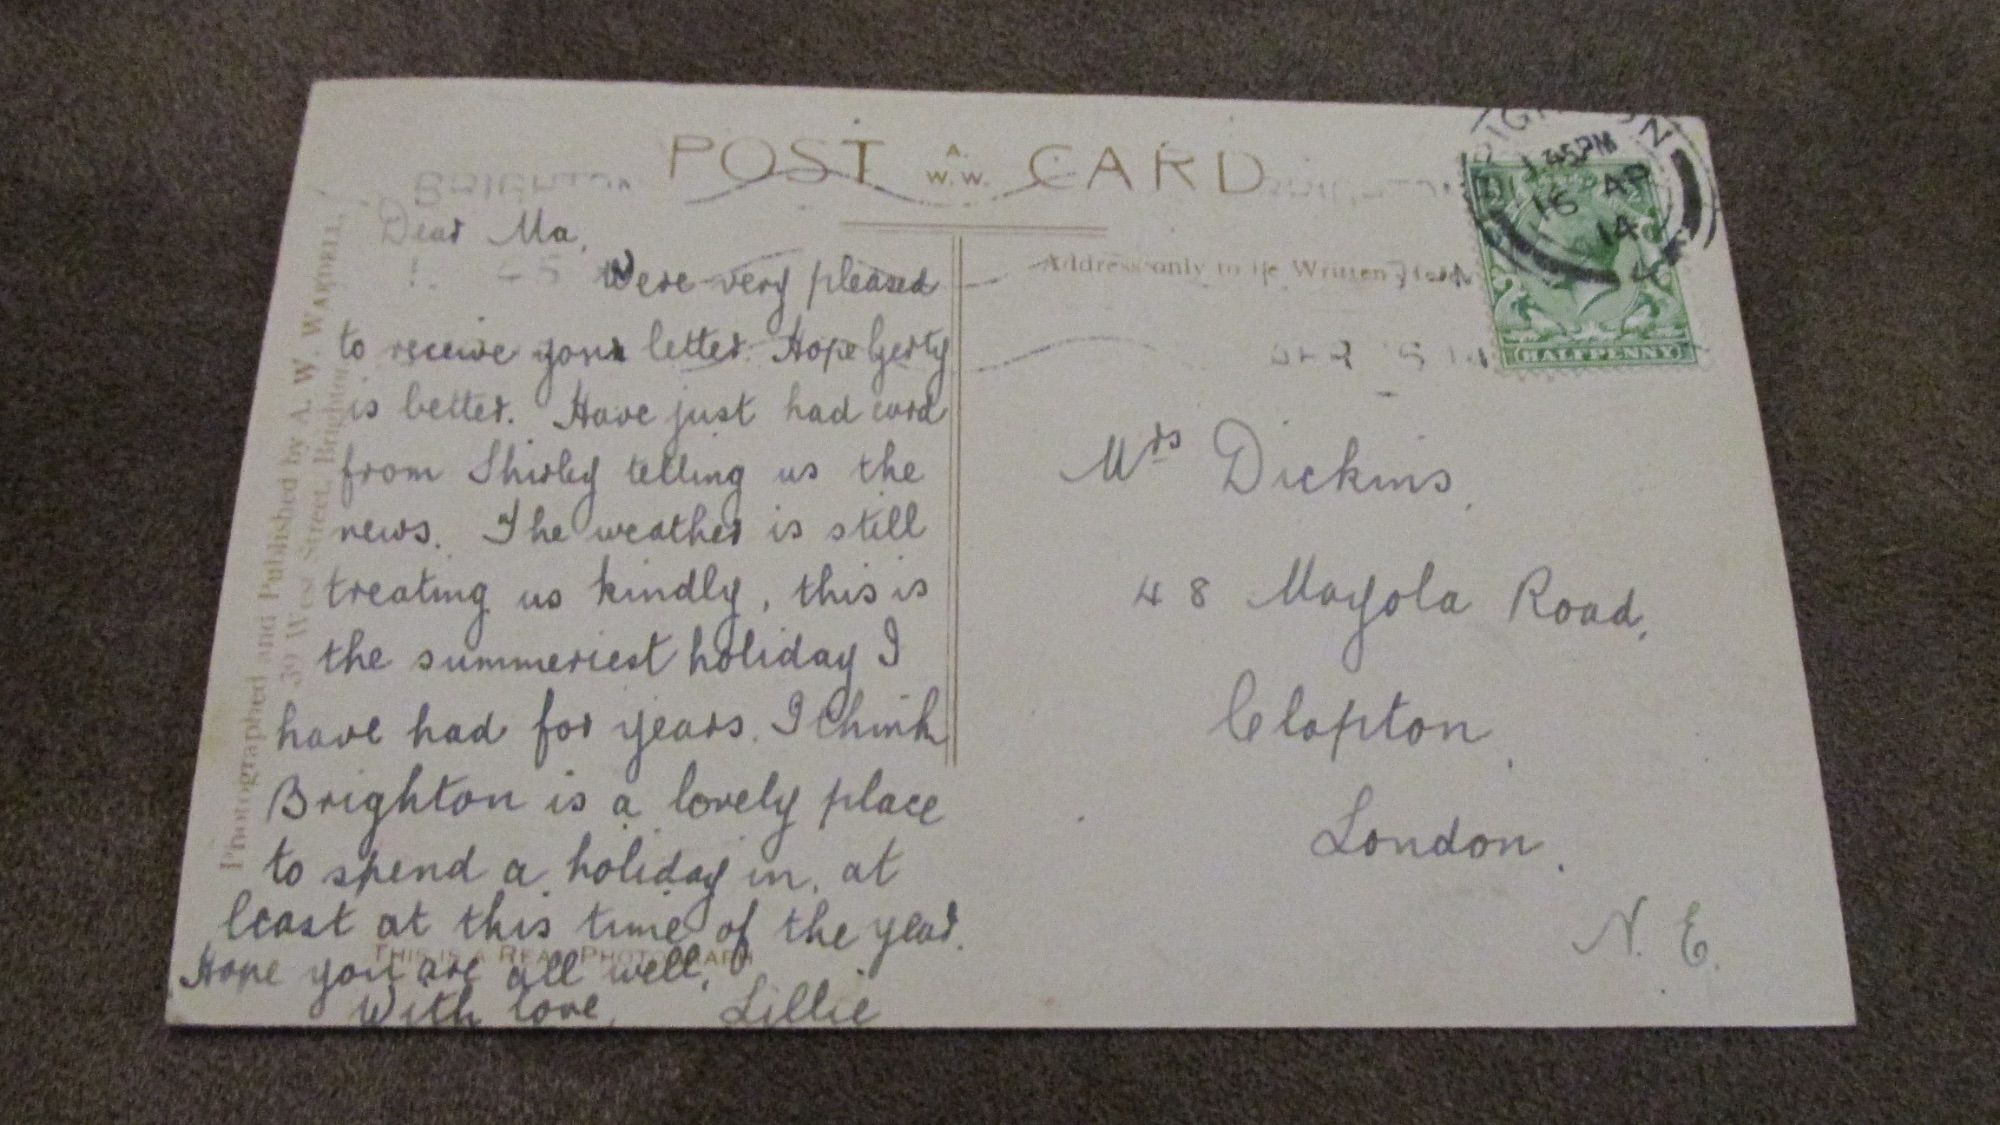 POST A. W.W. CARD
BRIGHTON
1.45PM
16 AP
14
HALFPENNY
Address only to be Written Here
Photographed and Published by A. W. WARDELL,
39 West Street, Brighton
Dear Ma,
Were very pleased
to receive your letter. Hope Gerty
is better. Have just had card
from Shirley telling us the
news. The weather is still
treating us kindly, this is
the summeriest holiday I
have had for years. I think
Brighton is a lovely place
to spend a holiday in, at
least at this time of the year.
THIS IS A REAL PHOTOGRAPH
Hope you are all well,
With love, Lillie
Mrs Dickins,
48 Mayola Road,
Clapton,
London.
N. E.